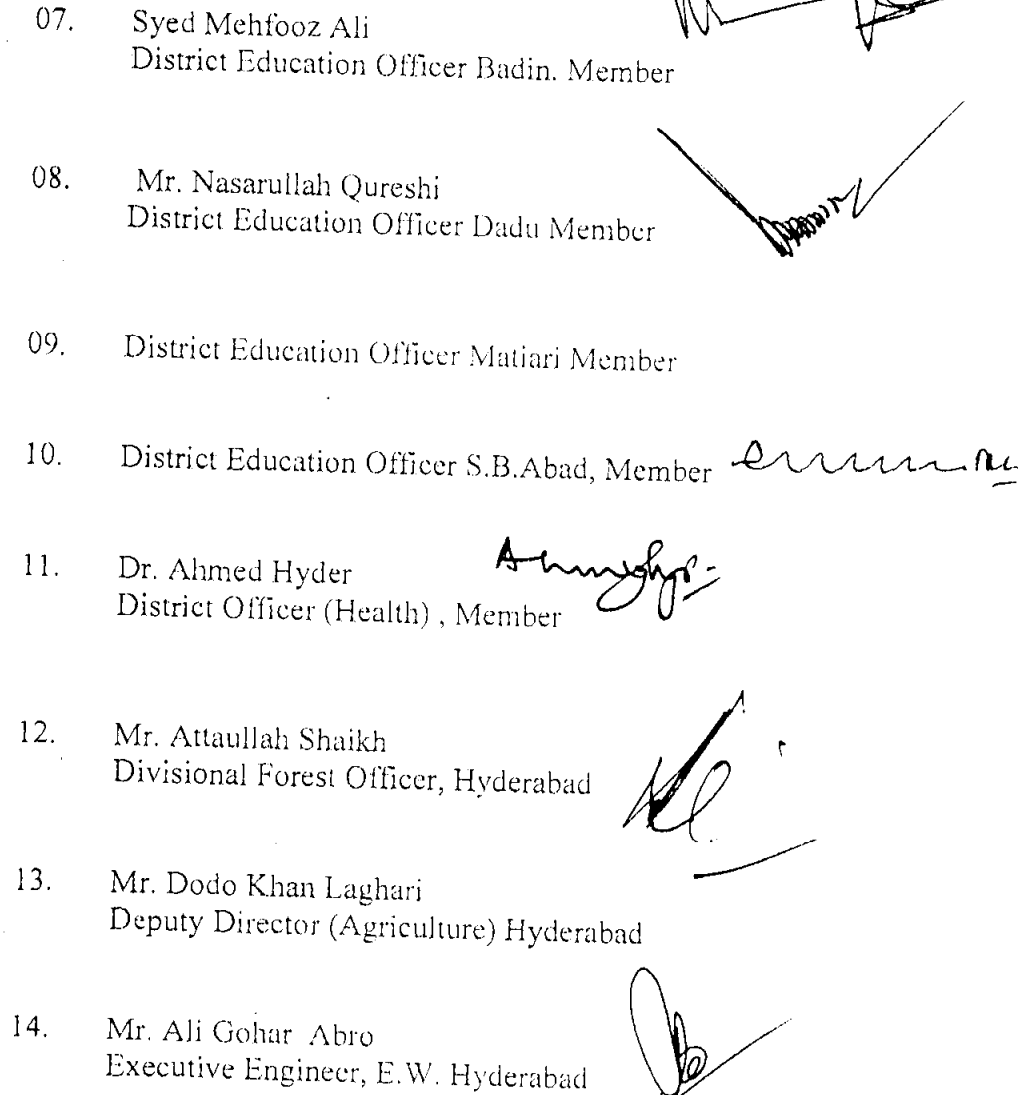 07. Syed Mehfooz Ali
District Education Officer Badin. Member
08. Mr. Nasarullah Qureshi
District Education Officer Dadu Member
09. District Education Officer Matiari Member
10. District Education Officer S.B.Abad, Member
11. Dr. Ahmed Hyder
District Officer (Health) , Member
12. Mr. Attaullah Shaikh
Divisional Forest Officer, Hyderabad
13. Mr. Dodo Khan Laghari
Deputy Director (Agriculture) Hyderabad
14. Mr. Ali Gohar Abro
Executive Engineer, E.W. Hyderabad